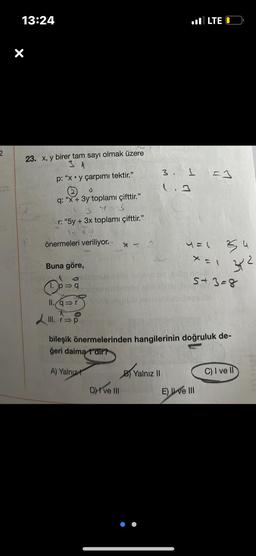 13:24
LTE
23. x, y birer tam sayı olmak üzere
p: "x • y çarpımı tektir."
q: "x + 3y toplamı çifttir."
r: "5y + 3x toplamı çifttir."
önermeleri veriliyor.
Buna göre,
I. p ⇒ q
II. q ⇒ r
III. r ⇒ p
bileşik önermelerinden hangilerinin doğruluk de-
ğeri daima 1'dir?
A) Yalnız I
B) Yalnız II
C) I ve II
D) I ve III
E) II ve III
3 . 1 = 3
1 . 3
y = 1
x = 1
5 + 3 = 8